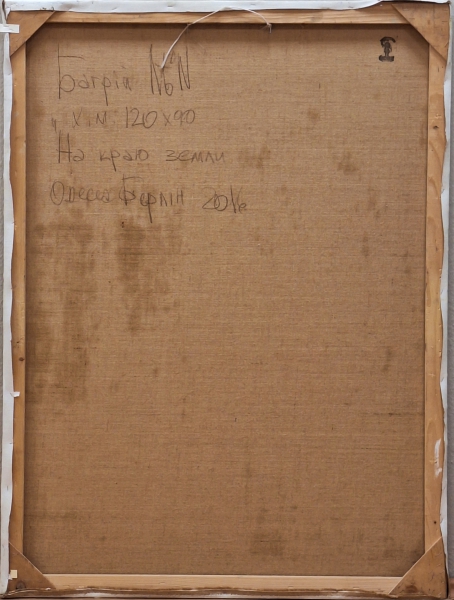 Багрій
х.м. 120х90
На краю землі
Одеса Берлін 2016